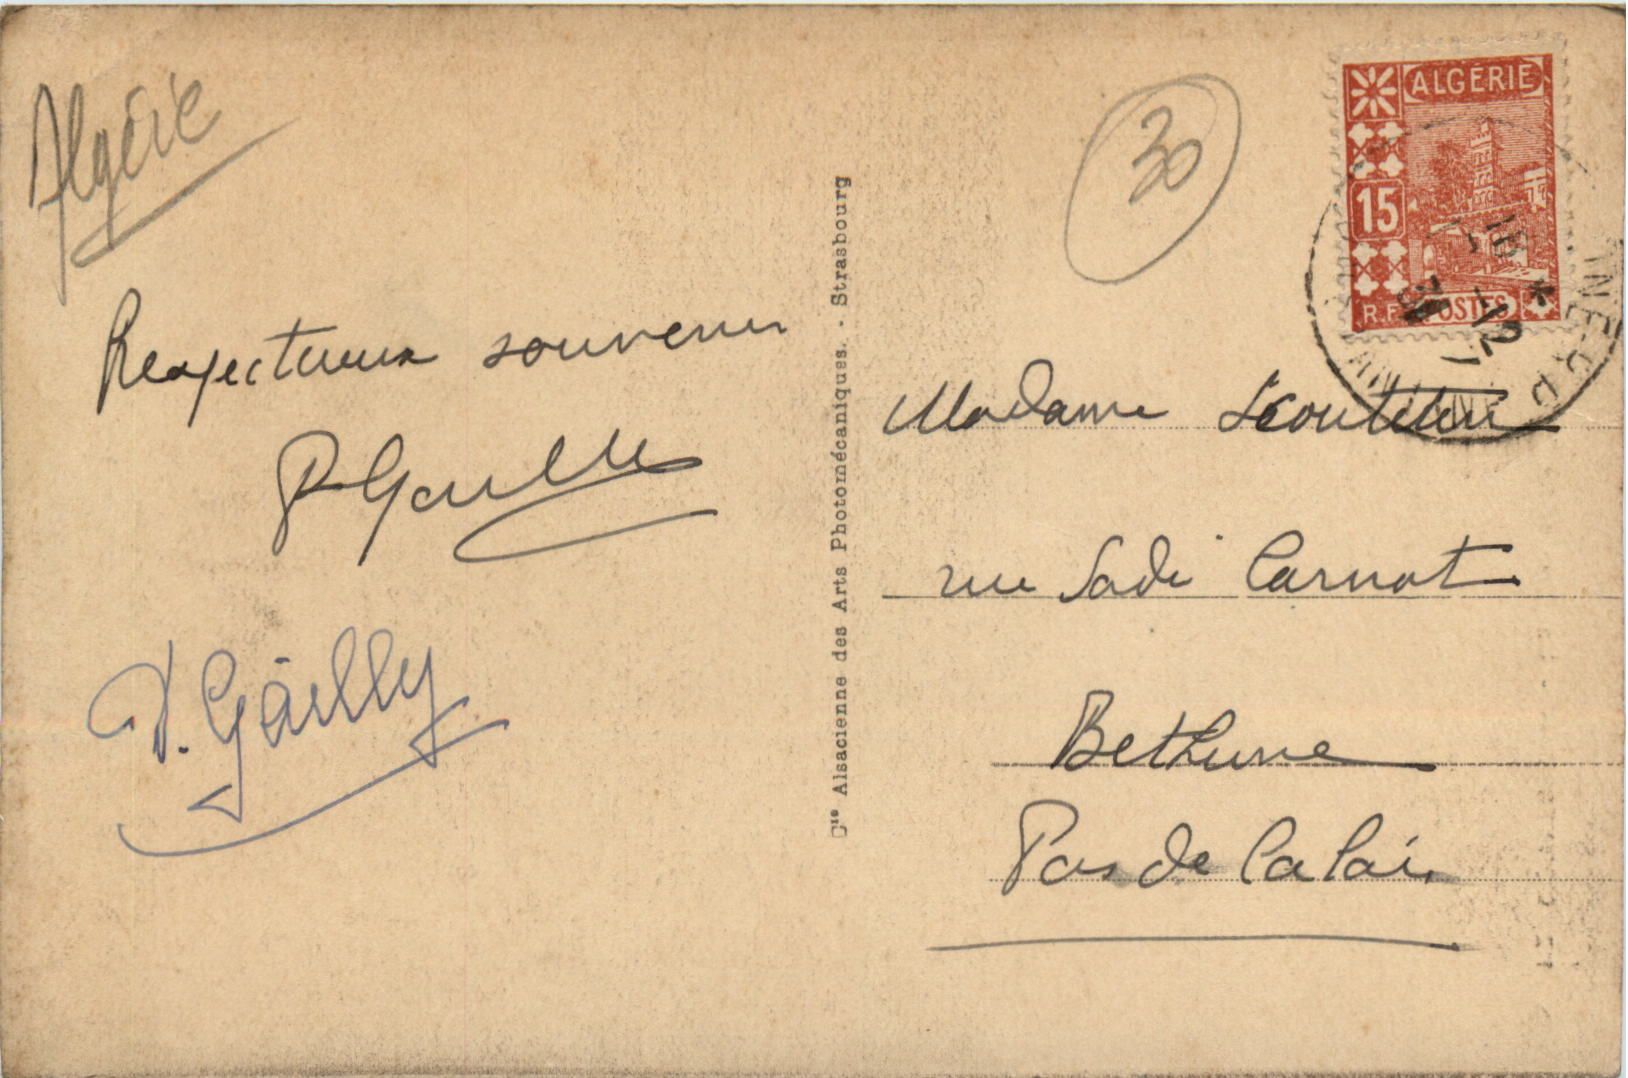 Algérie
Respectueux souvenir
P Gailly
V. Gailly
Cie Alsacienne des Arts Photomécaniques. - Strasbourg
30
ALGÉRIE
15
R.F. POSTES
18
-12
Madame
rue Sadi Carnot
Bethune
Pas de Calais